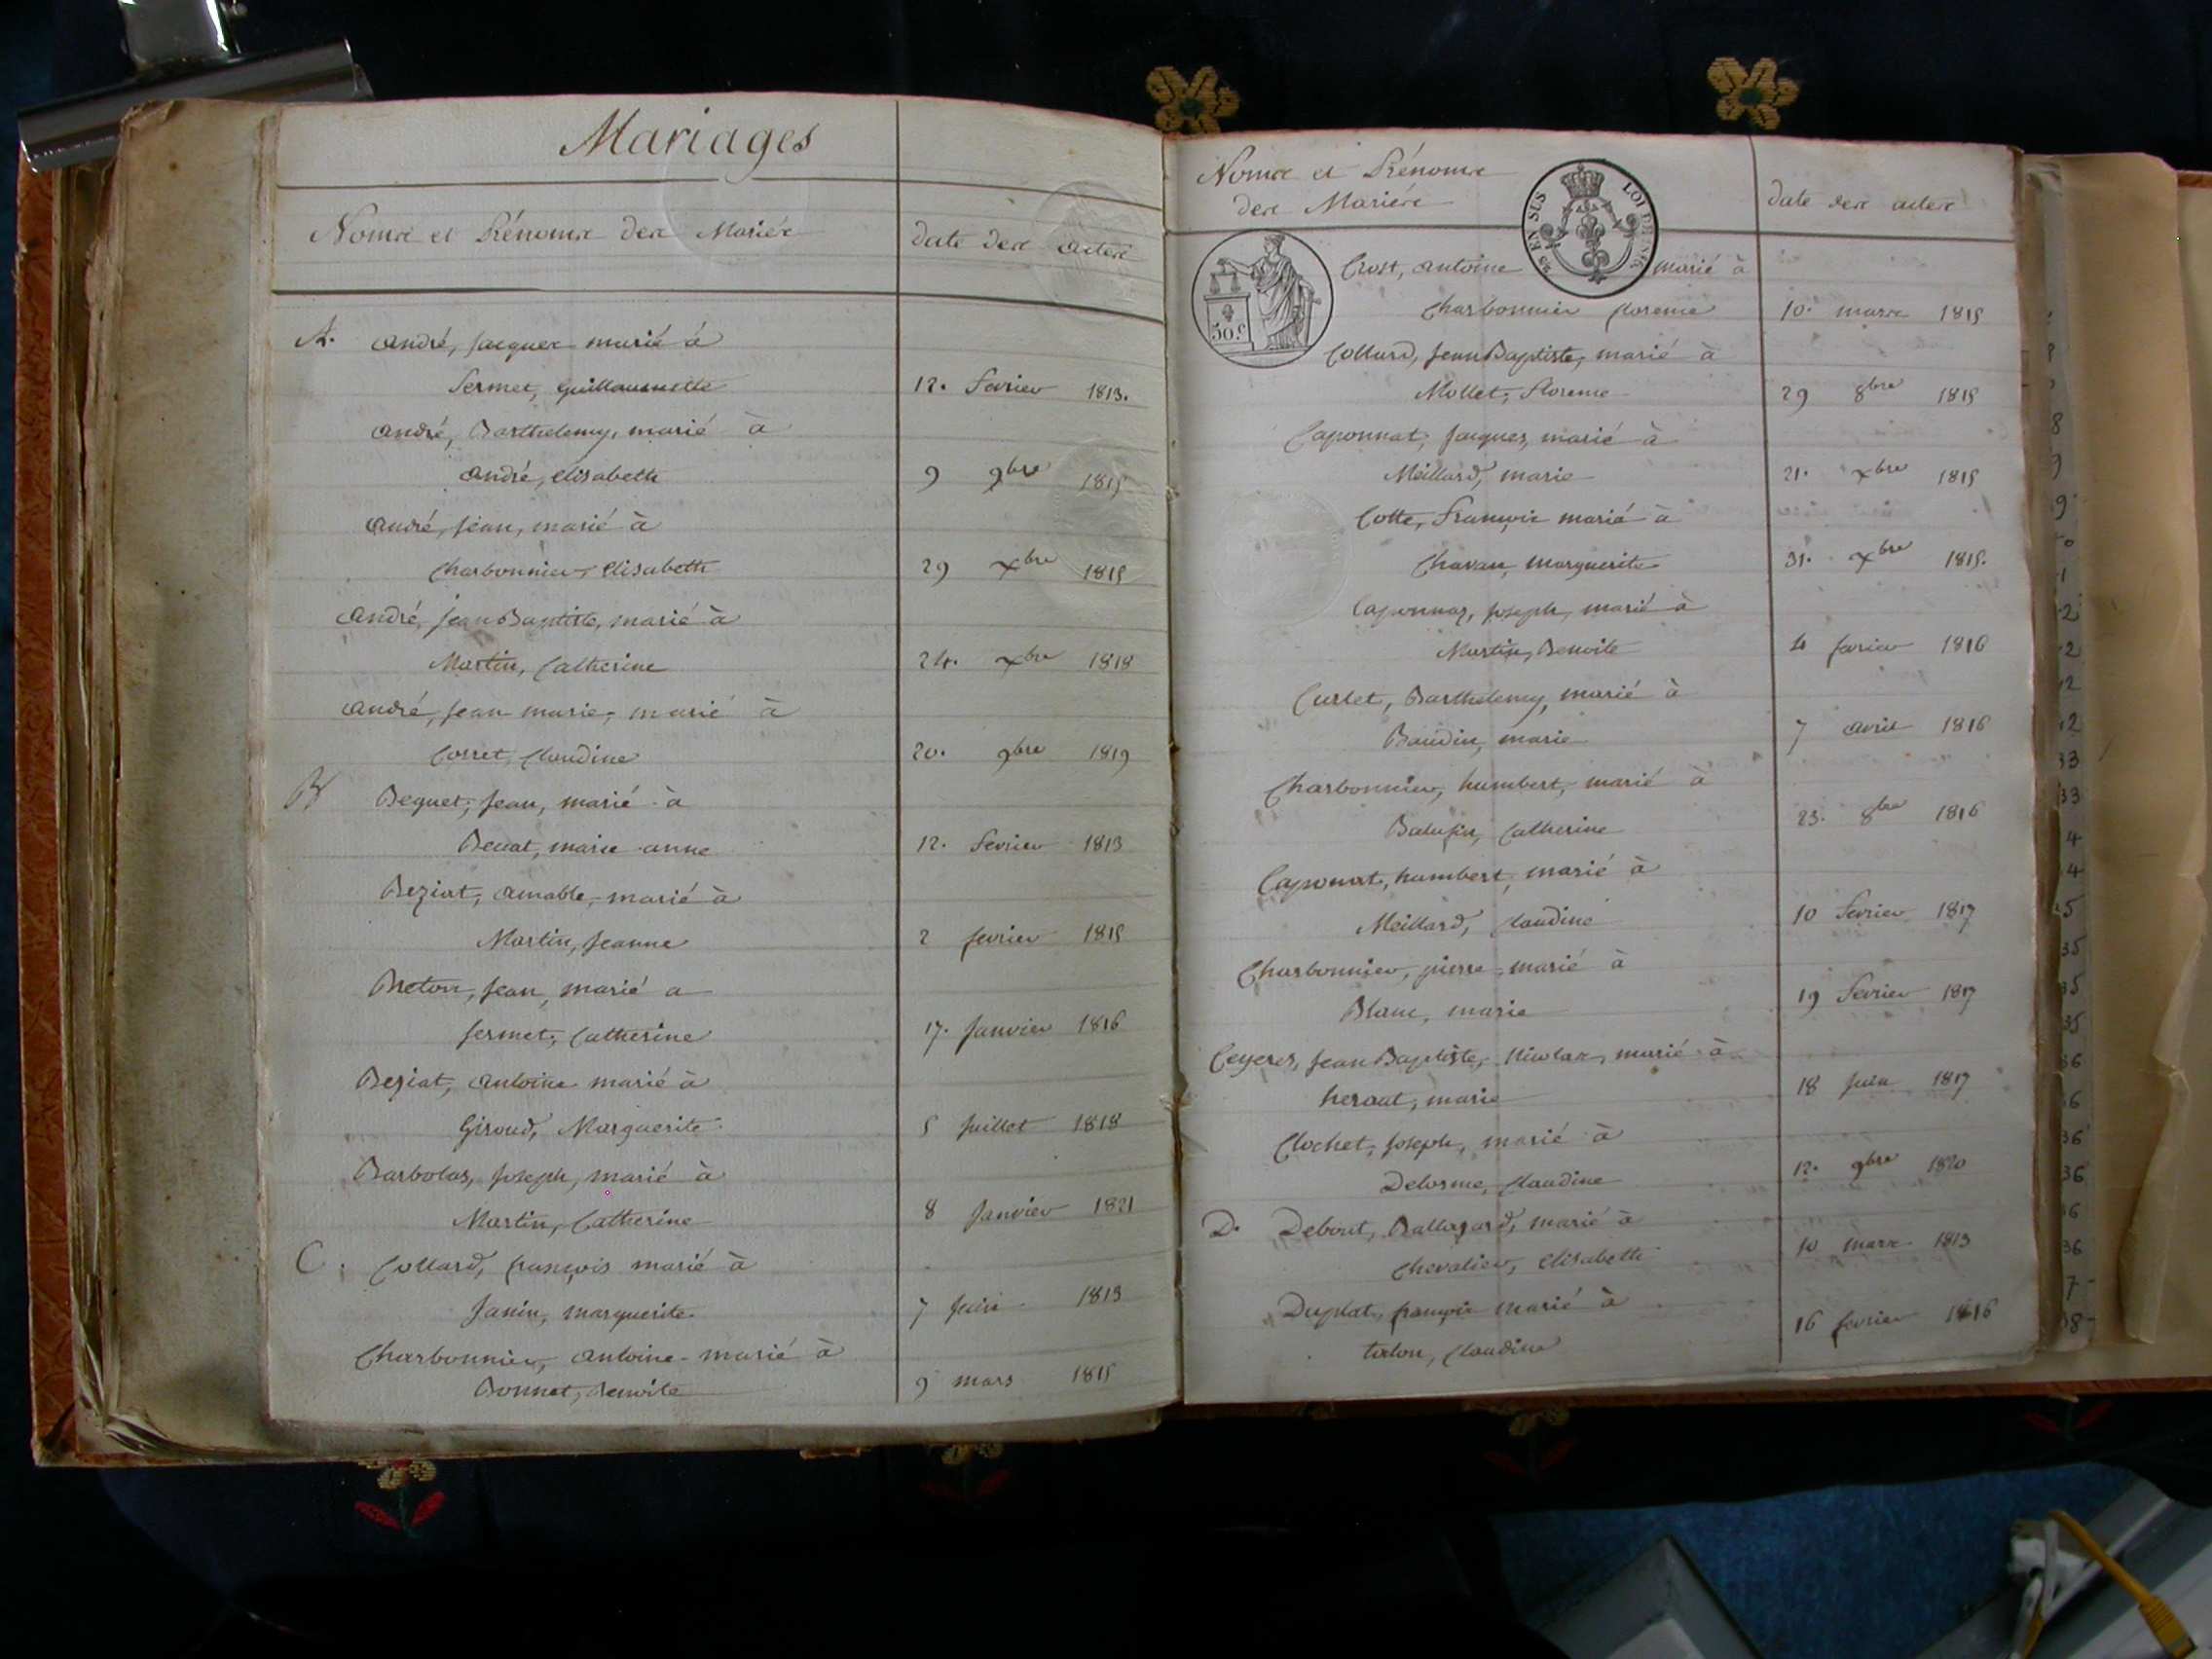 Mariages
Noms et Prénoms des Mariés
date des actes
A. André, Jacques marié à
Fermet, Guillaumette 12. fevrier 1813.
André, Barthelemy, marié à
André, elisabeth 9 9bre 1815
André, jean, marié à
Charbonnier, elisabeth 29 xbre 1815
André, jean Baptiste, marié à
Martin, Catherine 24. xbre 1818
André, jean marie, marié à
Corret, Claudine 20. 9bre 1819
B Beguet, Jean, marié à
marie anne 12. fevrier 1813
Beziat, amable, marié à
Martin, Jeanne 2 fevrier 1815
Breton, Jean, marié a
fermet, Catherine 17. Janvier 1816
Beziat, antoine marié à
Giroud, Marguerite 5 Juillet 1818
Barbolas, joseph, marié à
Martin, Catherine 8 Janvier 1821
C. Collard, françois marié à
Janin, marguerite 7 Juin 1813
Charbonnier, antoine marié à
Bonnet, Benoite 9 mars 1815
Noms et Prénoms
des Mariés
date des actes
25 EN SUS LOI DE
50 c.
Crost, antoine marié à
Charbonnier florence 10. mars 1815
Collard, Jean Baptiste, marié à
Mollet, florence 29 8bre 1815
Caponnat, Jacques, marié à
Meillard, marie 21. xbre 1815
Cotte, François marié à
Chavan, marguerite 31. xbre 1815.
Caponnaz, joseph, marié à
Martin, Benoite 4 favrier 1816
Curlet, Barthelemy, marié à
Baudin, marie 7 avril 1816
Charbonnier, humbert, marié à
Catherine 23. 8bre 1816
Caponat, humbert, marié à
Meillard, Claudine 10 fevrier 1817
Charbonnier, pierre marié à
Blanc, marie 19 fevrier 1817
Jean Baptiste, Nicolas, marié à
heraut, marie 18 Juin 1817
Clochet, joseph, marié à
Delorme, Claudine 12. 9bre 1820
D. Debout, Baltazard, marié à
Chevalier, Elisabeth 10 mars 1813
Duplat, françois marié à
talon, Claudine 16 fevrier 1816